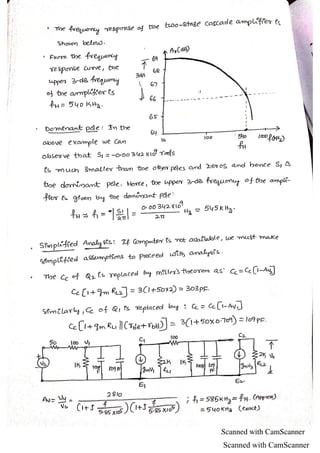 • The frequency response of the two-stage cascade amplifier is
shown below.
• From the frequency
response curve, the
upper 3-dB frequency
of the amplifier is
fH = 540 KHz.
Av(dB)
69
68
3dB
67
66
65
64
1k 100 540 1000 f(KHz)
fH
• Dominant pole: In the
above example we can
observe that S1 = -0.00342 x10^9 rad/s
is much smaller than the other poles and zeros, and hence S1 is
the dominant pole. Hence, the upper 3-dB frequency of the ampli-
fier is given by the dominant pole:
fH = f1 = -|S1/2π| = 0.00342 x10^9 / 2π Hz = 545KHz.
• Simplified Analysis: If computer is not available, we must make
simplified assumptions to proceed with analysis.
• The Cc of Q2 is replaced by miller's theorem as: Cc = Cc[1-AV]
Cc[1+gm RL2] = 3(1+50x2) = 303PF.
Similarly, Cc of Q1 is replaced by: Cc = Cc[1-AV1]
Cc[1+gm RL1 || (rb'e+rbb')] = 3(1+50x0.709) = 109PF.
50 100 V1 C1 100 C2
Vs 1K 100PF 109PF gmV1 2K RL1 1K gmV2 2K RL2 Vo
E1 E2
Av = Vo/Vs = 2810 / (1+j f/5.85x10^5)(1+j f/5.85x10^5) ; f1 = 585KHz = fH. (Approx)
= 540KHz (Exact)
Scanned with CamScanner
Scanned with CamScanner